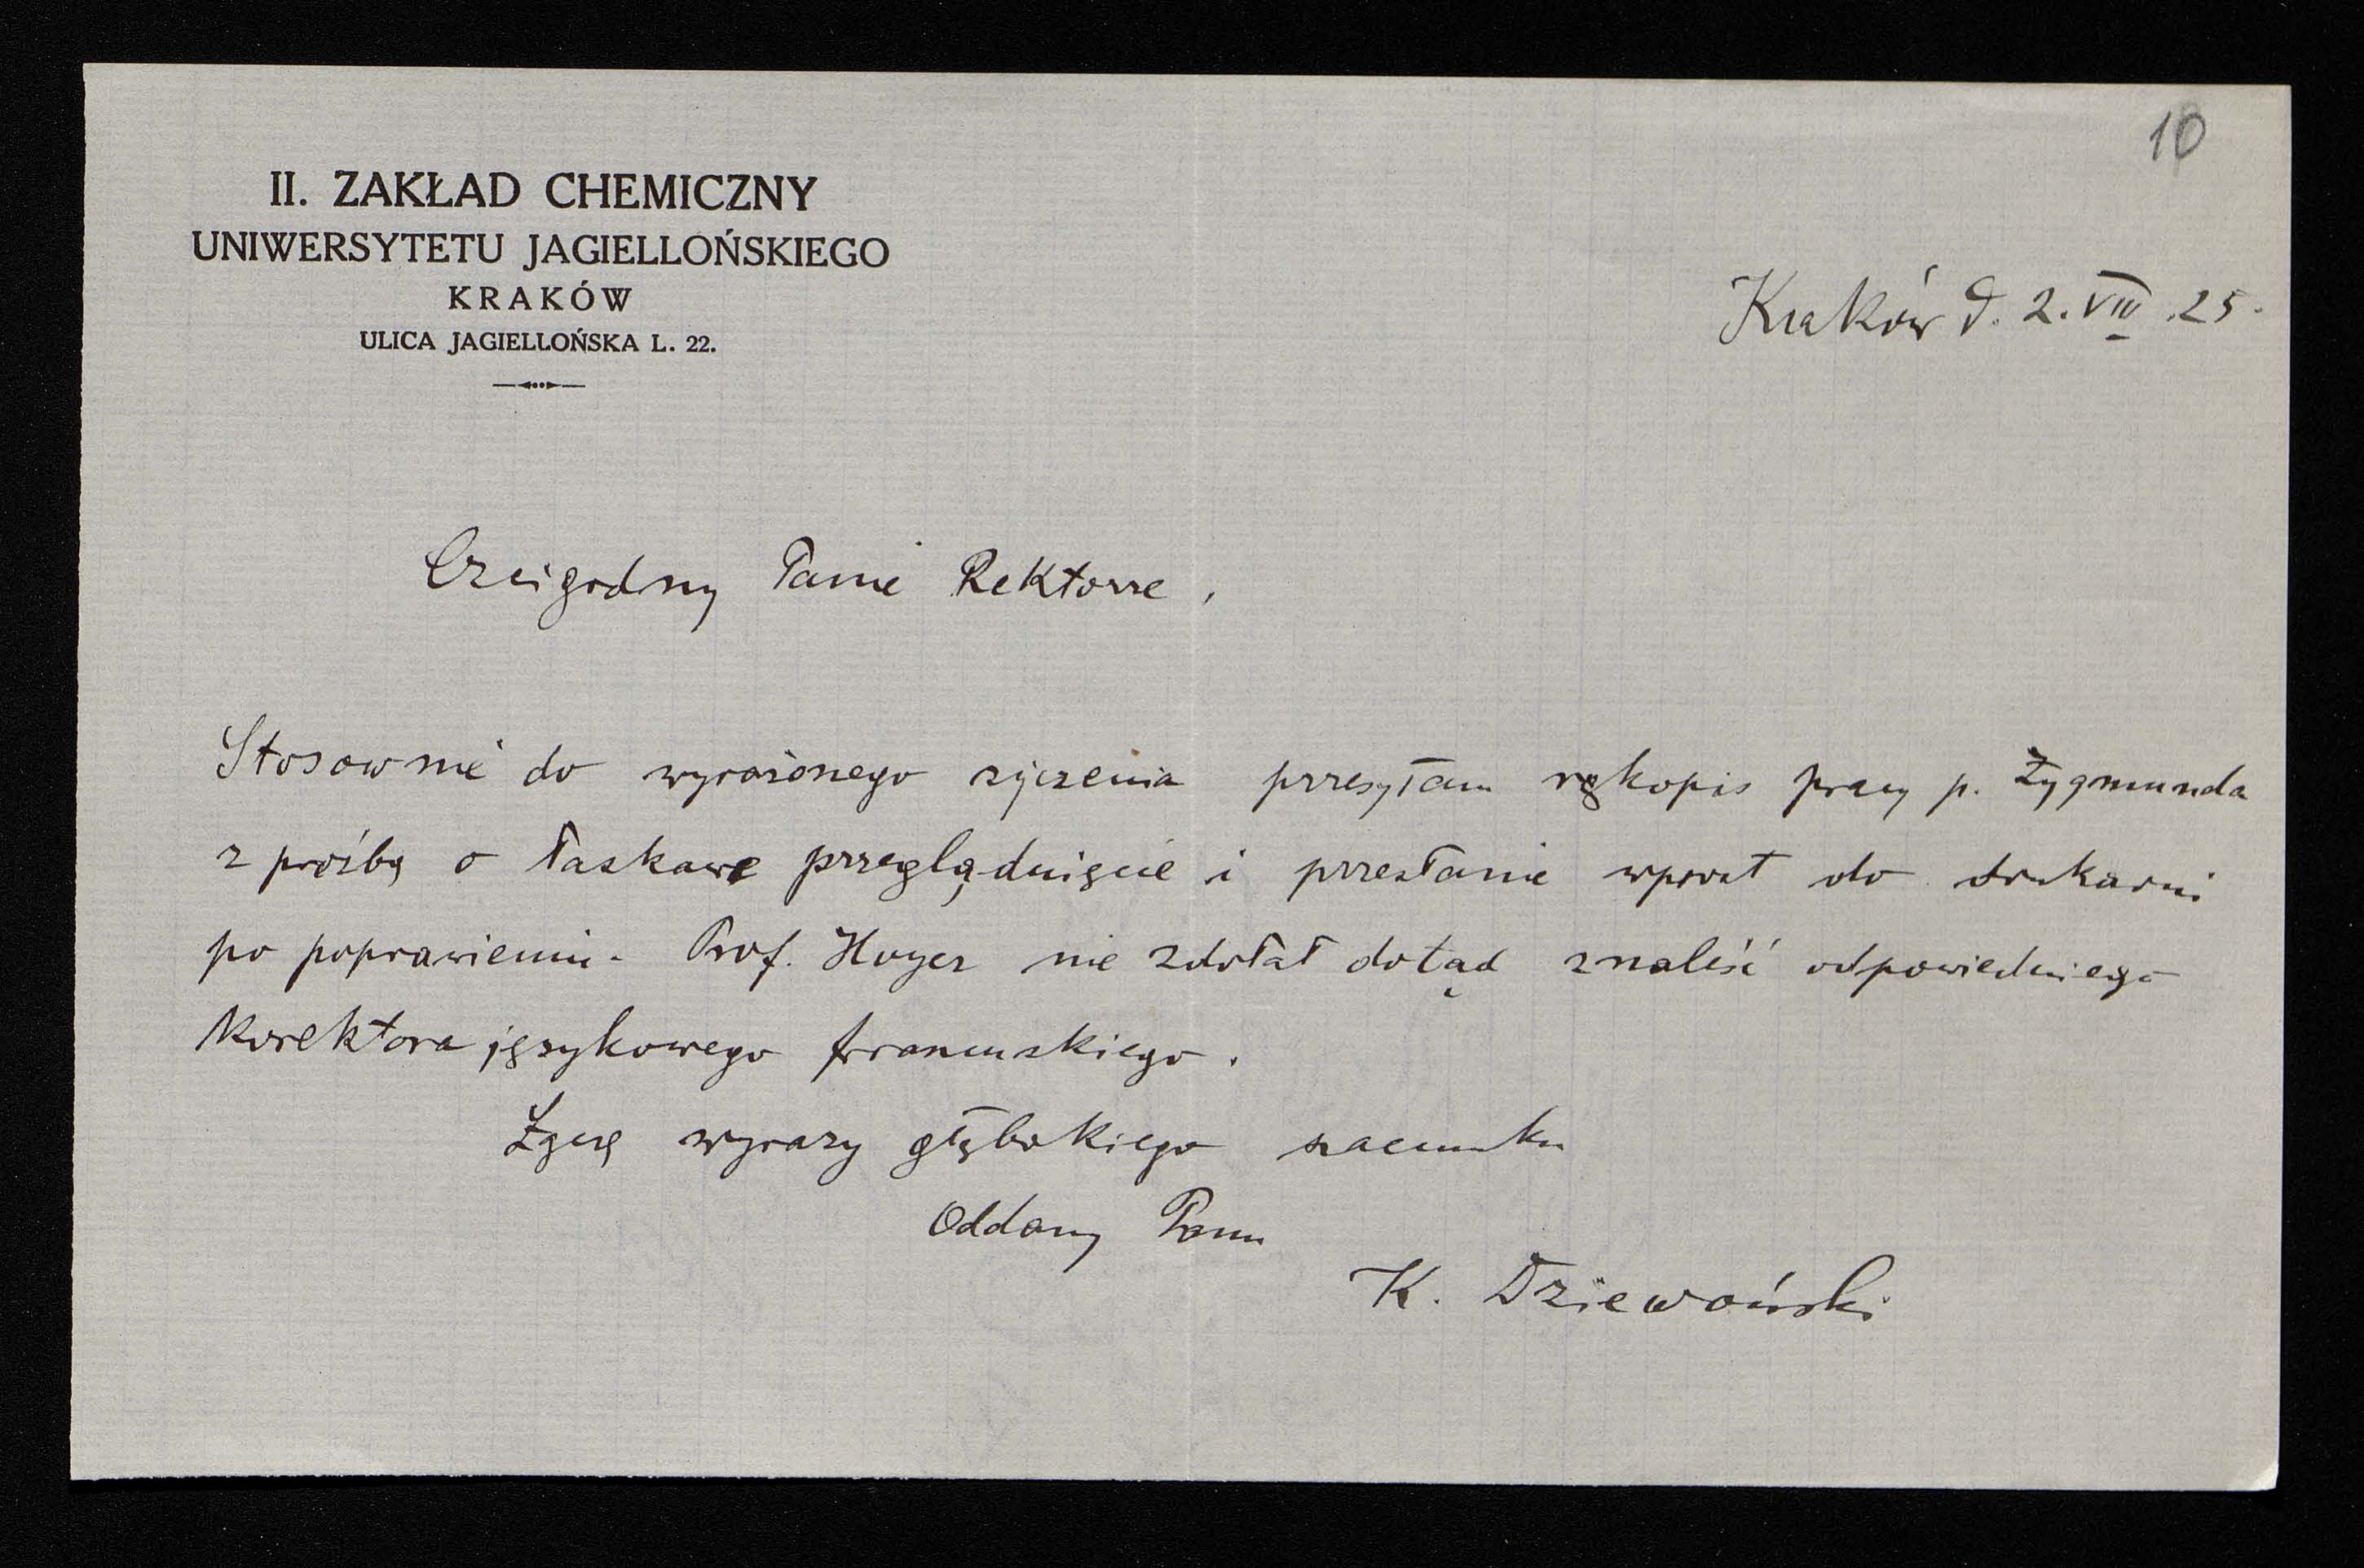 10
II. ZAKŁAD CHEMICZNY
UNIWERSYTETU JAGIELLOŃSKIEGO
KRAKÓW
ULICA JAGIELLOŃSKA L. 22.
Kraków d. 2. VIII .25.
Czcigodny Panie Rektorze,
Stosownie do wyrażonego życzenia przesyłam rękopis pracy p. Zygmunda
z prośbą o łaskawe przeglądnięcie i przesłanie wprost do drukarni
po poprawieniu. Prof. Hoyer nie zdołał dotąd znaleść odpowiedniego
korektora językowego francuskiego.
Łączę wyrazy głębokiego szacunku
Oddany Panu
K. Dziewoński